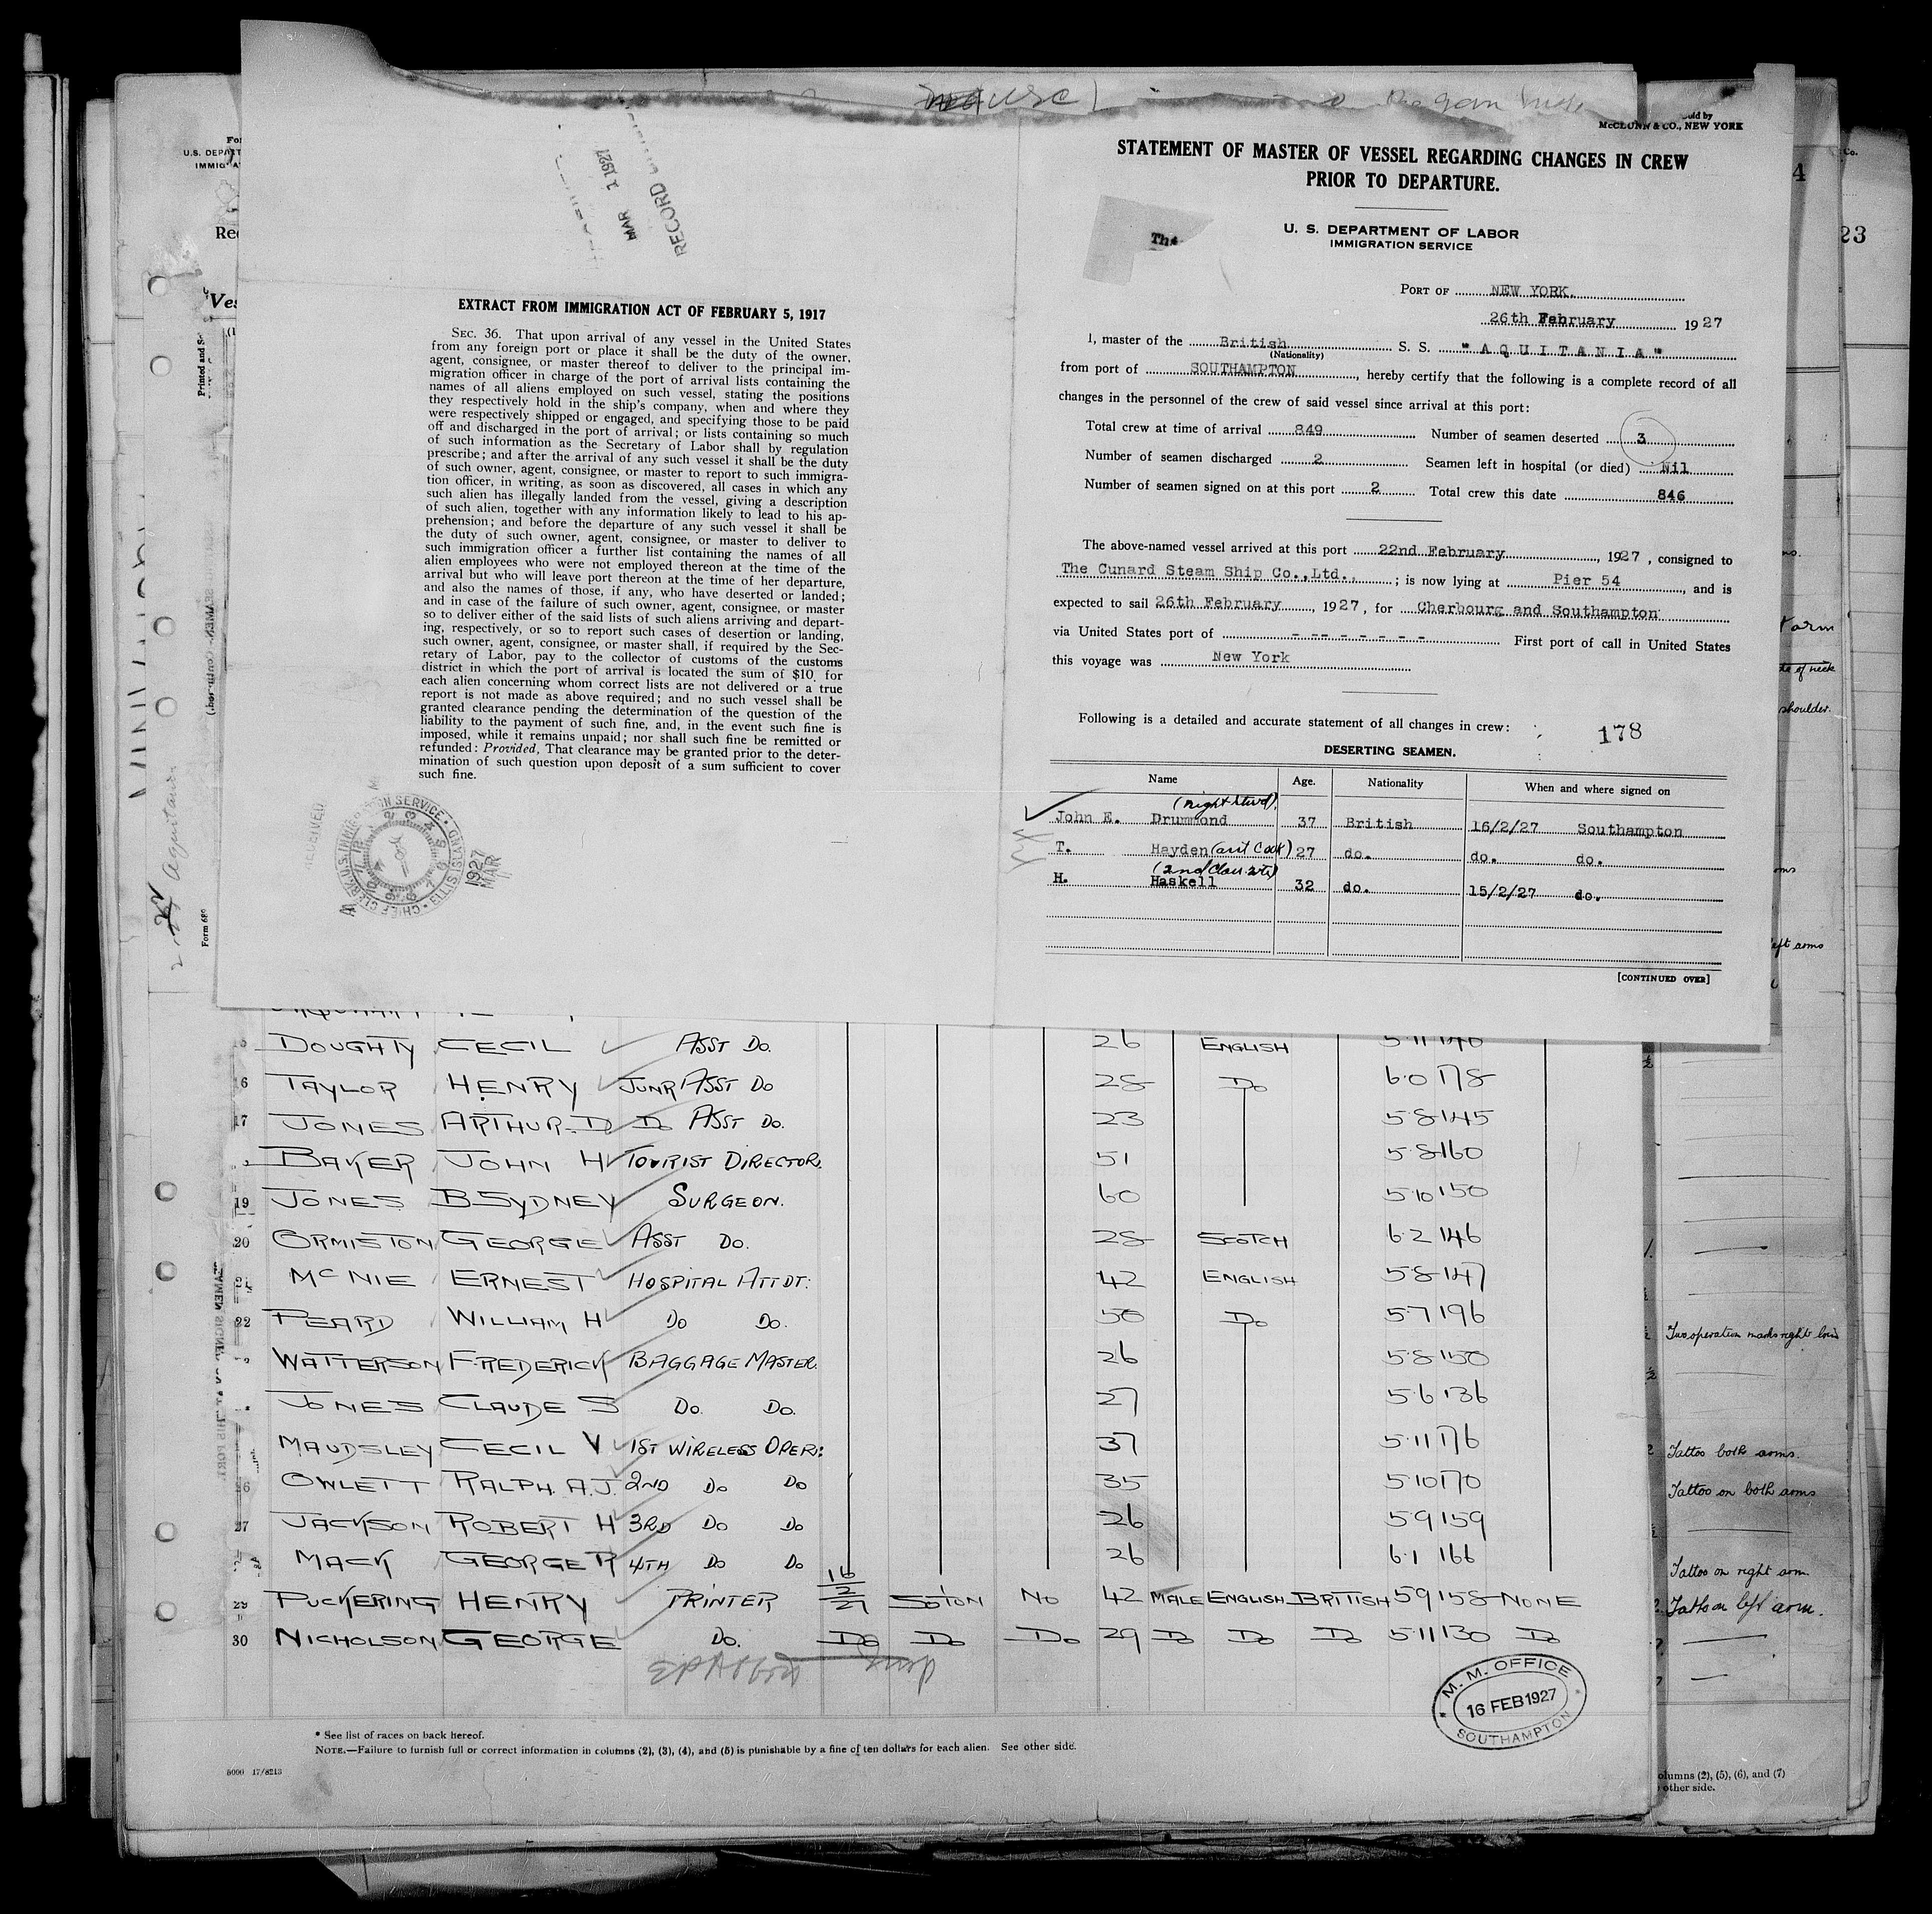 McCLUNN & CO., NEW YORK
MAR 1 1927
RECORD
EXTRACT FROM IMMIGRATION ACT OF FEBRUARY 5, 1917
SEC. 36. That upon arrival of any vessel in the United States
from any foreign port or place it shall be the duty of the owner,
agent, consignee, or master thereof to deliver to the principal im-
migration officer in charge of the port of arrival lists containing the
names of all aliens employed on such vessel, stating the positions
they respectively hold in the ship's company, when and where they
were respectively shipped or engaged, and specifying those to be paid
off and discharged in the port of arrival; or lists containing so much
of such information as the Secretary of Labor shall by regulation
prescribe; and after the arrival of any such vessel it shall be the duty
of such owner, agent, consignee, or master to report to such immigra-
tion officer, in writing, as soon as discovered, all cases in which any
such alien has illegally landed from the vessel, giving a description
of such alien, together with any information likely to lead to his ap-
prehension; and before the departure of any such vessel it shall be
the duty of such owner, agent, consignee, or master to deliver to
such immigration officer a further list containing the names of all
alien employees who were not employed thereon at the time of the
arrival but who will leave port thereon at the time of her departure,
and also the names of those, if any, who have deserted or landed;
and in case of the failure of such owner, agent, consignee, or master
so to deliver either of the said lists of such aliens arriving and depart-
ing, respectively, or so to report such cases of desertion or landing,
such owner, agent, consignee, or master shall, if required by the Sec-
retary of Labor, pay to the collector of customs of the customs
district in which the port of arrival is located the sum of $10 for
each alien concerning whom correct lists are not delivered or a true
report is not made as above required; and no such vessel shall be
granted clearance pending the determination of the question of the
liability to the payment of such fine, and, in the event such fine is
imposed, while it remains unpaid; nor shall such fine be remitted or
refunded: Provided, That clearance may be granted prior to the deter-
mination of such question upon deposit of a sum sufficient to cover
such fine.
RECEIVED
CHIEF CLERK U.S. IMMIGRATION SERVICE ELLIS ISLAND
1927 MAR
STATEMENT OF MASTER OF VESSEL REGARDING CHANGES IN CREW
PRIOR TO DEPARTURE.
U. S. DEPARTMENT OF LABOR
IMMIGRATION SERVICE
PORT OF NEW YORK.
26th February 1927
I, master of the British S. S. "AQUITANIA"
(Nationality)
from port of SOUTHAMPTON, hereby certify that the following is a complete record of all
changes in the personnel of the crew of said vessel since arrival at this port:
Total crew at time of arrival 849 Number of seamen deserted 3
Number of seamen discharged 2 Seamen left in hospital (or died) Nil
Number of seamen signed on at this port 2 Total crew this date 846
The above-named vessel arrived at this port 22nd February, 1927, consigned to
The Cunard Steam Ship Co.,Ltd.,; is now lying at Pier 54, and is
expected to sail 26th February, 1927, for Cherbourg and Southampton
via United States port of - -- - - - - - First port of call in United States
this voyage was New York
Following is a detailed and accurate statement of all changes in crew:
178
DESERTING SEAMEN.
Name Age. Nationality When and where signed on
(night stwd)
John E. Drummond 37 British 16/2/27 Southampton
T. Hayden (asst Cook) 27 do. do. do.
(2nd Class wtr)
H. Haskell 32 do. 15/2/27 do.
[CONTINUED OVER]
DOUGHTY CECIL ASST DO. 26 ENGLISH 5·11 140
6 TAYLOR HENRY JUNR ASST DO 28 DO 6·0 178
17 JONES ARTHUR. D DO ASST DO. 23 5·8 145
BAKER JOHN H TOURIST DIRECTOR. 51 5·8 160
19 JONES B. SYDNEY SURGEON. 60 5·10 150
20 ORMISTON GEORGE ASST DO. 28 SCOTCH 6·2 146
21 McNIE ERNEST HOSPITAL ATTDT: 42 ENGLISH 5·8 147
22 PEARD WILLIAM H DO DO. 50 DO 5·7 196
WATTERSON FREDERICK BAGGAGE MASTER. 26 5·8 150
JONES CLAUDE S DO. DO. 27 5·6 136
MAUDSLEY CECIL V 1ST WIRELESS OPER: 37 5·11 176
26 OWLETT RALPH. A.J. 2ND DO DO 35 5·10 170
27 JACKSON ROBERT H 3RD DO DO 26 5·9 159
MACK GEORGE R 4TH DO DO 26 6·1 166
29 PUCKERING HENRY PRINTER 16/2/27 SOTON NO 42 MALE ENGLISH BRITISH 5·9 158 NONE
30 NICHOLSON GEORGE DO. DO DO DO 29 DO DO DO 5·11 130 DO
M. M. OFFICE
16 FEB 1927
SOUTHAMPTON
* See list of races on back hereof.
NOTE.—Failure to furnish full or correct information in columns (2), (3), (4), and (5) is punishable by a fine of ten dollars for each alien. See other side.
5000 17/8213
Form 689
Aquitania
23
shoulder.
left arms
Two operation marks right
Tattoo both arms.
Tattoo on both arms
Tattoo on right arm.
Tattoo on left arm.
columns (2), (5), (6), and (7)
other side.